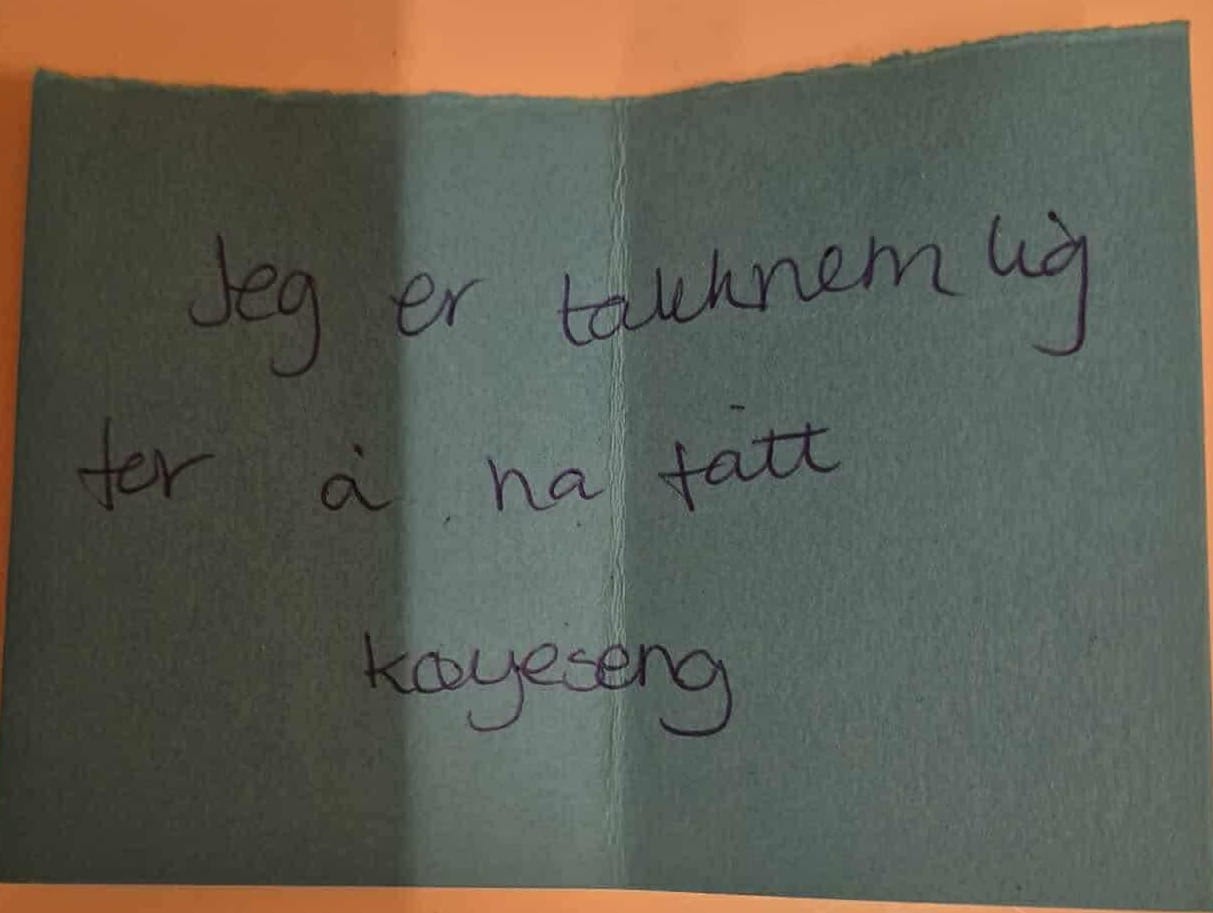 Jeg er takknemlig
for å ha fått
køyeseng